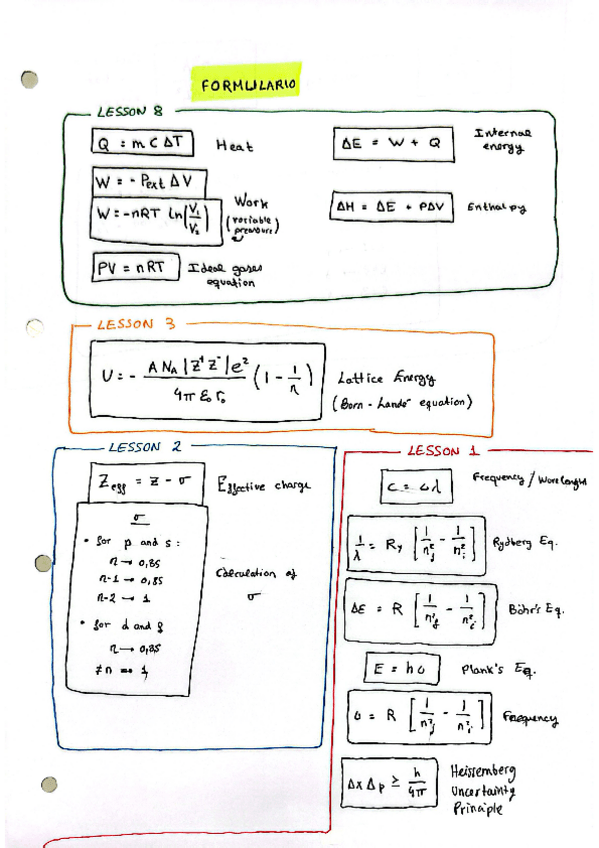 FORMULARIO
LESSON 8
Q = m C ΔT Heat
W = - Pext ΔV
W = -nRT ln(V1/V2) Work (variable pressure)
PV = nRT Ideal gases equation
ΔE = W + Q Internal energy
ΔH = ΔE + PΔV Enthalpy
LESSON 3
U = - A NA |Z+ Z-| e² / 4π ε0 r0 (1 - 1/n)
Lattice Energy
(Born - Landé equation)
LESSON 2
Zeff = Z - σ Effective charge
σ
• for p and s:
n → 0,85
n-1 → 0,85
n-2 → 1
• for d and f
n → 0,85
≠n → 1
Calculation of
σ
LESSON 1
c = υλ Frequency / Wavelength
1/λ = Ry [1/nf² - 1/ni²] Rydberg Eq.
ΔE = R [1/nf² - 1/ni²] Böhr's Eq.
E = h υ Plank's Eq.
υ = R [1/nf² - 1/ni²] Frequency
Δx Δp ≥ h/4π Heissemberg
Uncertainty
Principle